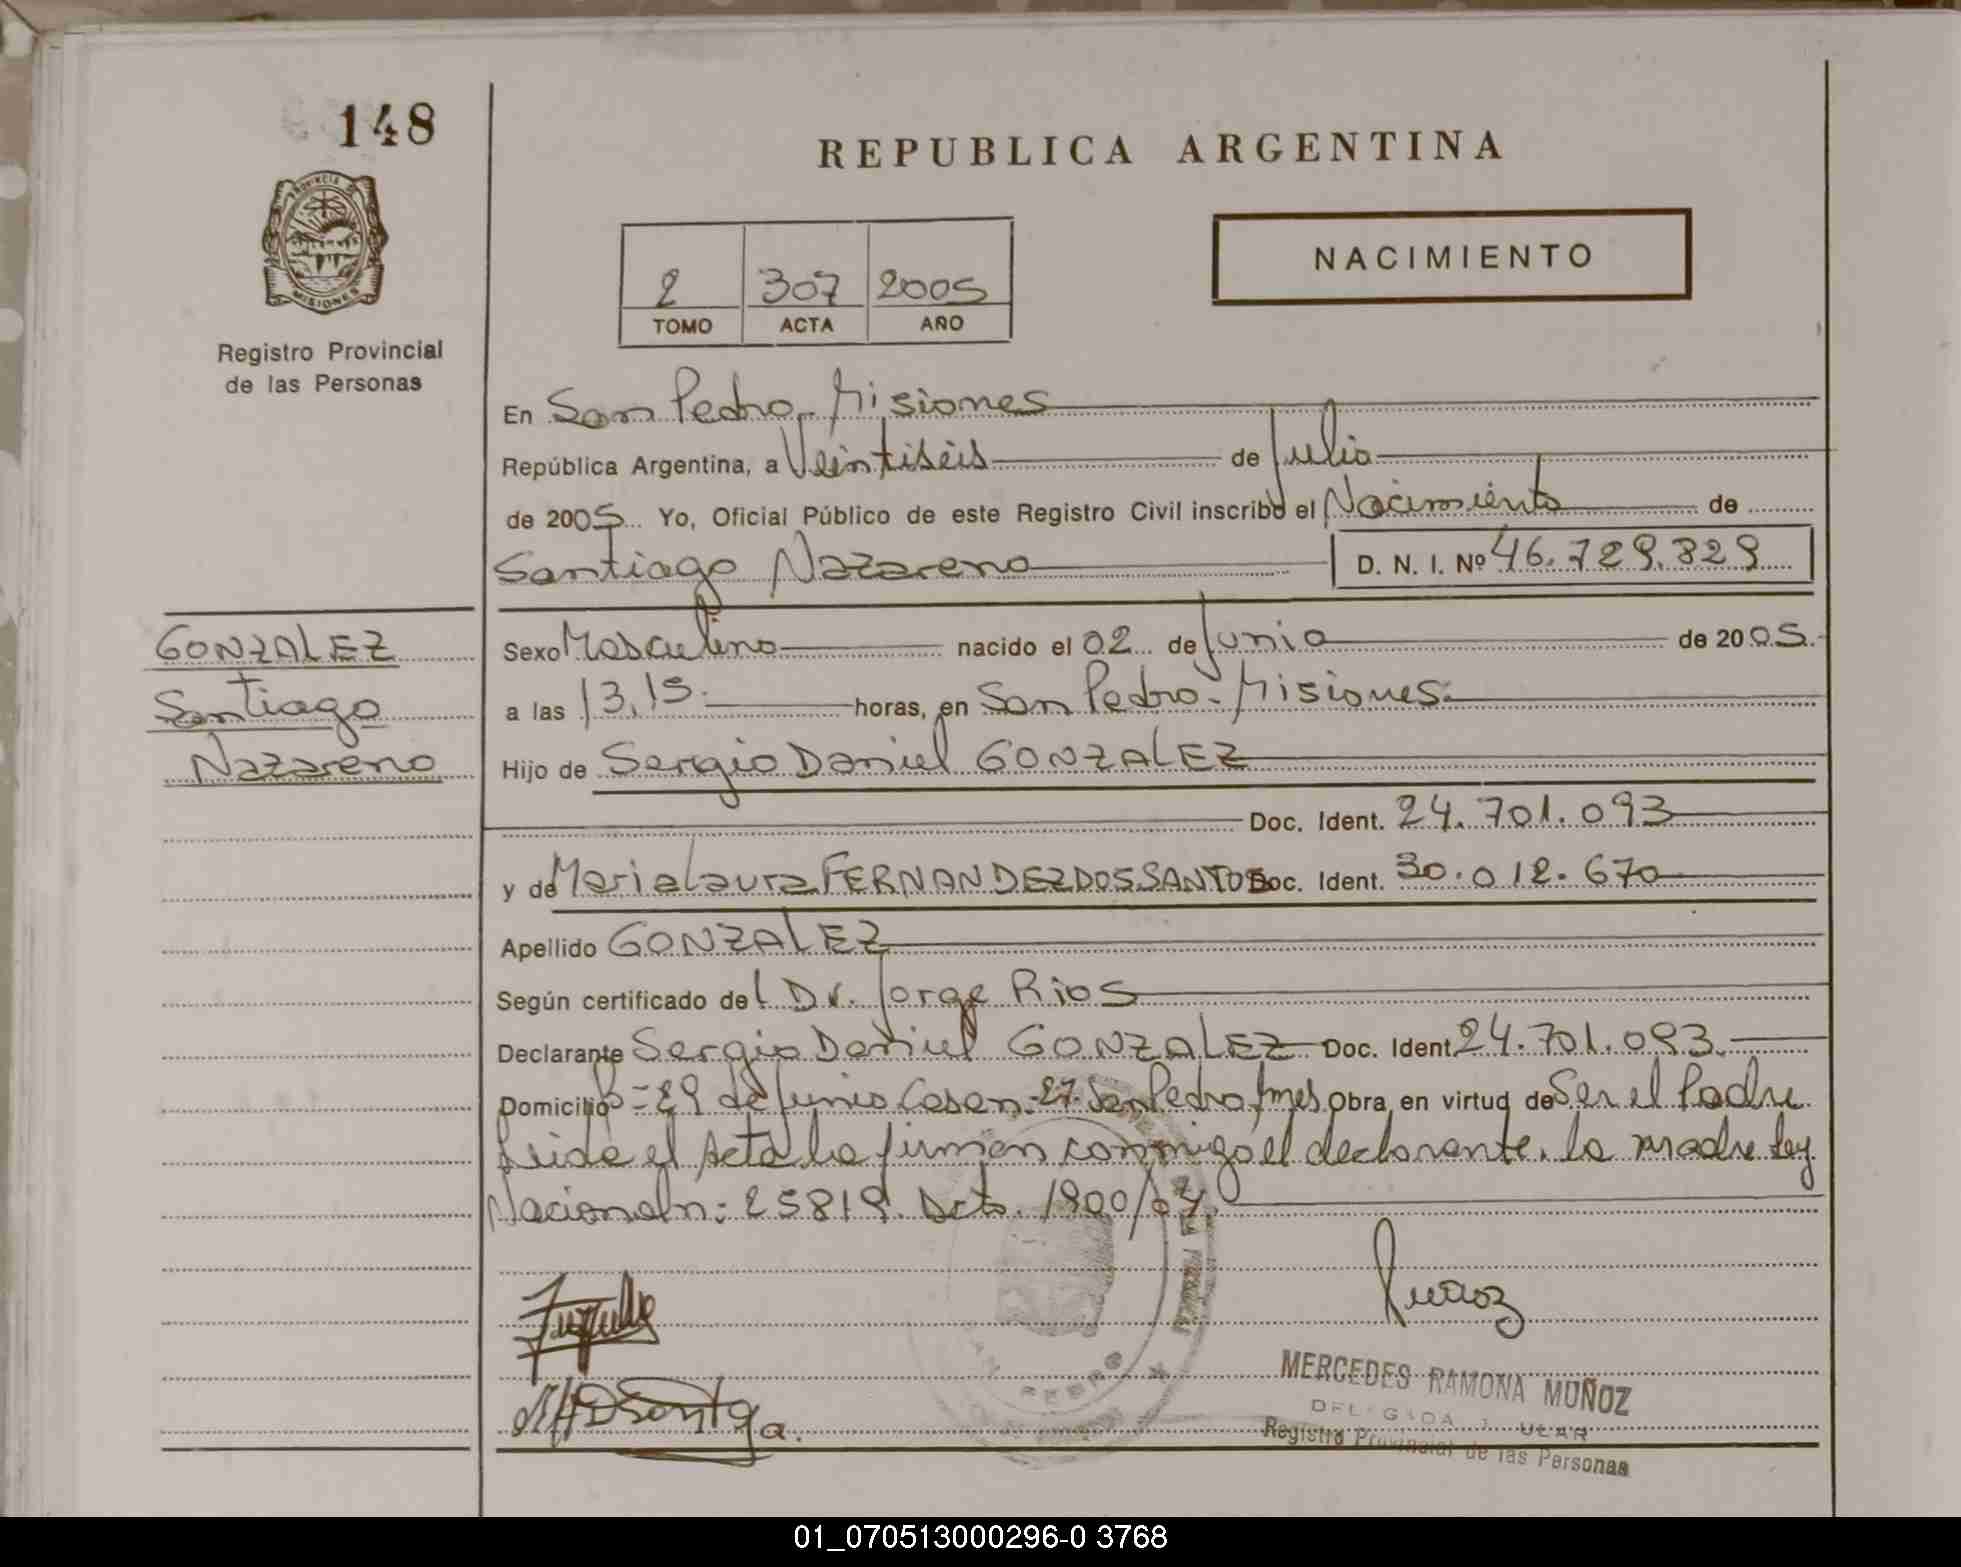 148
REPUBLICA ARGENTINA
PROVINCIA DE
MISIONES
NACIMIENTO
2 307 2005
TOMO ACTA AÑO
Registro Provincial
de las Personas
En San Pedro. Misiones
República Argentina, a Veintiséis de Julio
de 2005 Yo, Oficial Público de este Registro Civil inscribo el Nacimiento de
Santiago Nazareno D. N. I. Nº 46.729.829
GONZALEZ
Santiago
Nazareno
Sexo Masculino nacido el 02 de Junio de 2005.
a las 13,15 horas, en San Pedro - Misiones
Hijo de Sergio Daniel GONZALEZ
Doc. Ident. 24.701.093
y de Maria Laura FERNANDEZ DOS SANTOS Doc. Ident. 30.012.670
Apellido GONZALEZ
Según certificado del Dr. Jorge Rios
Declarante Sergio Daniel GONZALEZ Doc. Ident. 24.701.093.
Domicilio Bº 29 de Junio Casa n: 27. San Pedro, Mnes Obra en virtud de Ser el Padre
Leida el Acta la firman conmigo el declarante, la madre Ley
Nacional n: 25819. Dcto. 1900/04.
SAN PEDRO
MERCEDES RAMONA MUÑOZ
DELEGADA TITULAR
Registro Provincial de las Personas
01_070513000296-0 3768